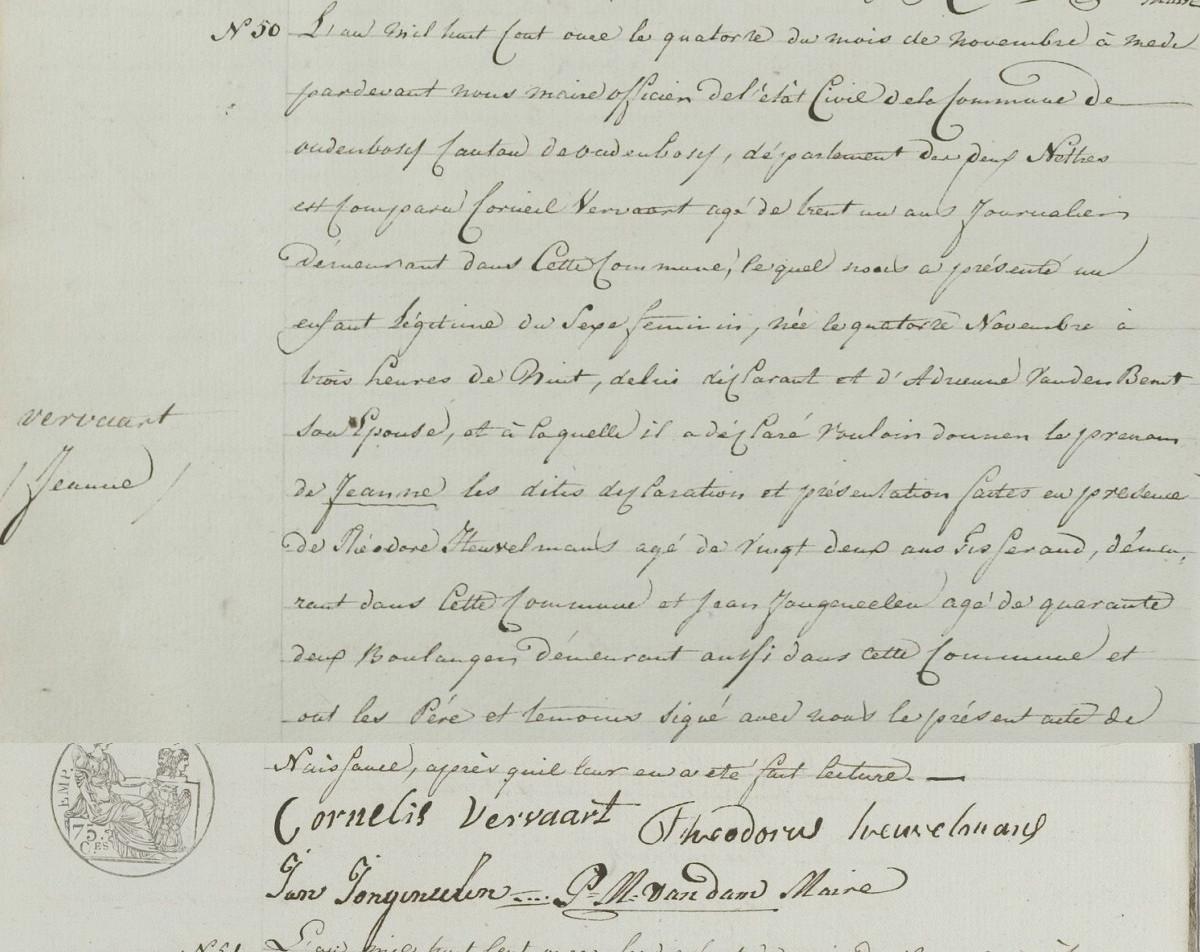 N 50 L'an mil huit Cent onze le quatorze du mois de novembre à
pardevant nous maire officier de l'état Civil dela Commune de
oudenbosch Canton de oudenbosch, département des deux Nethes
est Comparu Corneil Vervaart agé de trent un ans Journalier
démeurant dans Cette Commune, lequel nous a présenté un
enfant Légitime du Sexe feminin, née le quatorze Novembre à
trois heures de Nuit, delui déclarant et d'Adrienne Vanden Bemt
son Epouse, et à laquelle il a déclaré vouloir donner le prenom
vervaart
Jeanne
de Jeanne les dites declaration et présentation faites en presence
de Théodore Heuvelmans agé de vingt deux ans Tisserand, démeu,
rant dans Cette Commune et Jean Jongeneelen agé de quarante
deux Boulanger démeurant aussi dans cette Commune et
ont les Pére et temoins signé avec nous le présent acte de
Naissance, après quil leur en a eté fait lecture.
EMP.
75.
CES
Cornelis Vervaart Theodorus heuvelmans
Jan Jongeneelen P. M. van dam Maire
N 51 L'an mil huit Cent onze